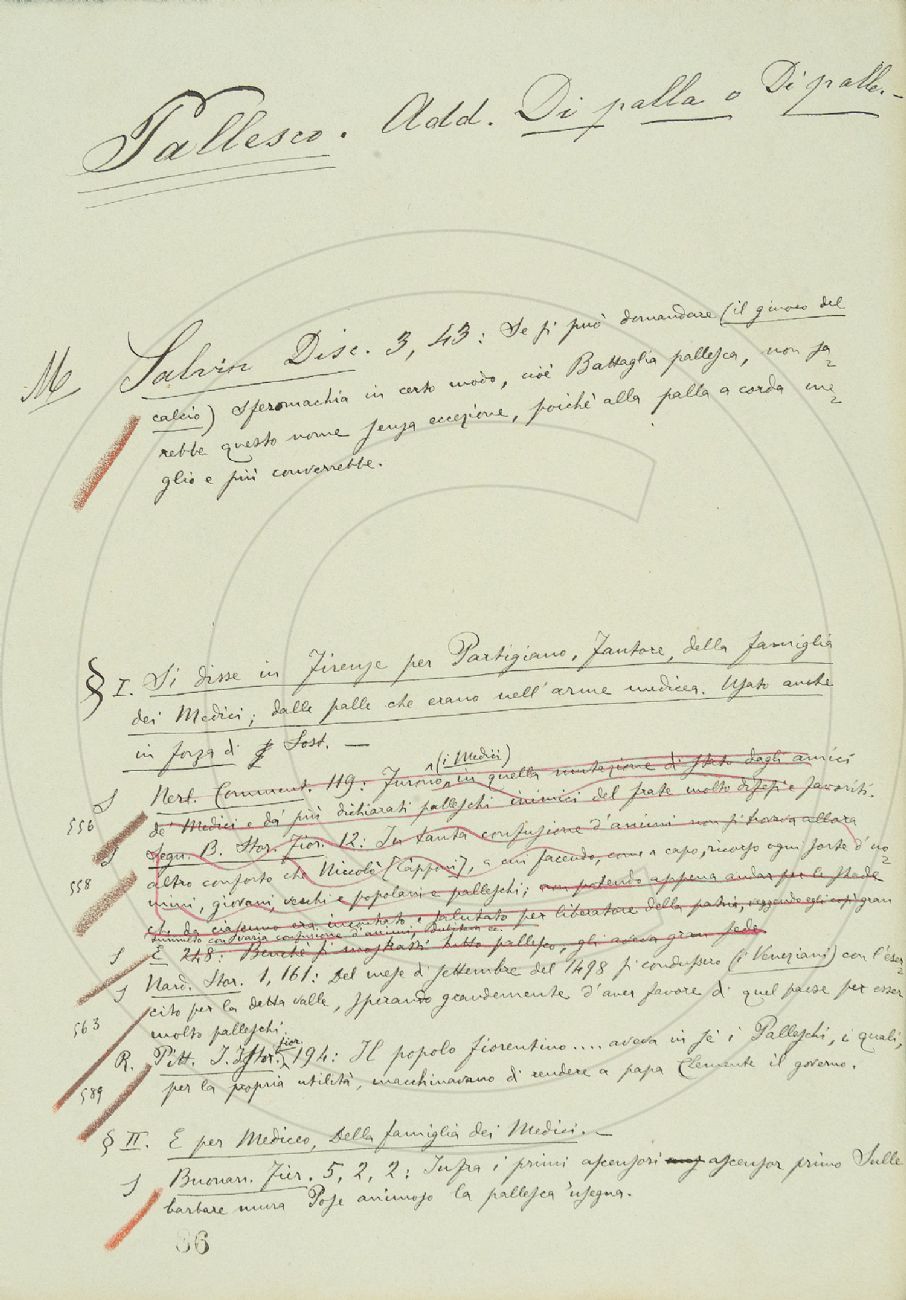 Pallesco. Add. Di palla o Di palle. –
M Salvin Disc. 3, 43: Se si può domandare (il giuoco del
calcio) Sferomachia in certo modo, cioè Battaglia pallesca, non sa=
rebbe questo nome senza eccezione, poichè alla palla a corda me=
glio e più converrebbe.
§ I. Si disse in Firenze per Partigiano, Fautore, della famiglia
dei Medici; dalle palle che erano nell'arme medicea. Usato anche
in forza di Sost. —
(i Medici)
S Nerl. Comment. 119: Furono in quella mutazione di Stato dagli amici
556 de' Medici e da' più dichiarati palleschi inimici del frate molto difesi e favoriti.
S Segn. B. Stor. Fior. 12: In tanta confusione d'animi non si trovava allora
558 altro conforto che Niccolò (Capponi), a cui facendo, come a capo, ricorso ogni sorte d'uo=
mini, giovani, vecchi e popolani e palleschi; non potendo appena andar per le strade
che da ciascuno era incontrato e salutato per liberatore della patria, veggendo egli così gran
tumulto con varia confusione d'animi,
S E 248: Benchè si mostrassi tutto pallesco, gli aveva gran fede.
S Nard. Stor. 1, 161: Del mese di settembre del 1498 si condussero (i Veneziani) con l'eser=
563 cito per la detta valle, sperando grandemente d'aver favore di quel paese per esser
molto palleschi.
fior.
R. Pitt. I. Istor. 194: Il popolo fiorentino.... aveva in sè i Palleschi, i quali,
589 per la propria utilità, macchinavano di rendere a papa Clemente il governo.
§ II. E per Mediceo, Della famiglia dei Medici. –
S Buonarr. Fier. 5, 2, 2: Infra i primi ascensori ascensor primo Sulle
barbare mura Pose animoso la pallesca insegna.
86